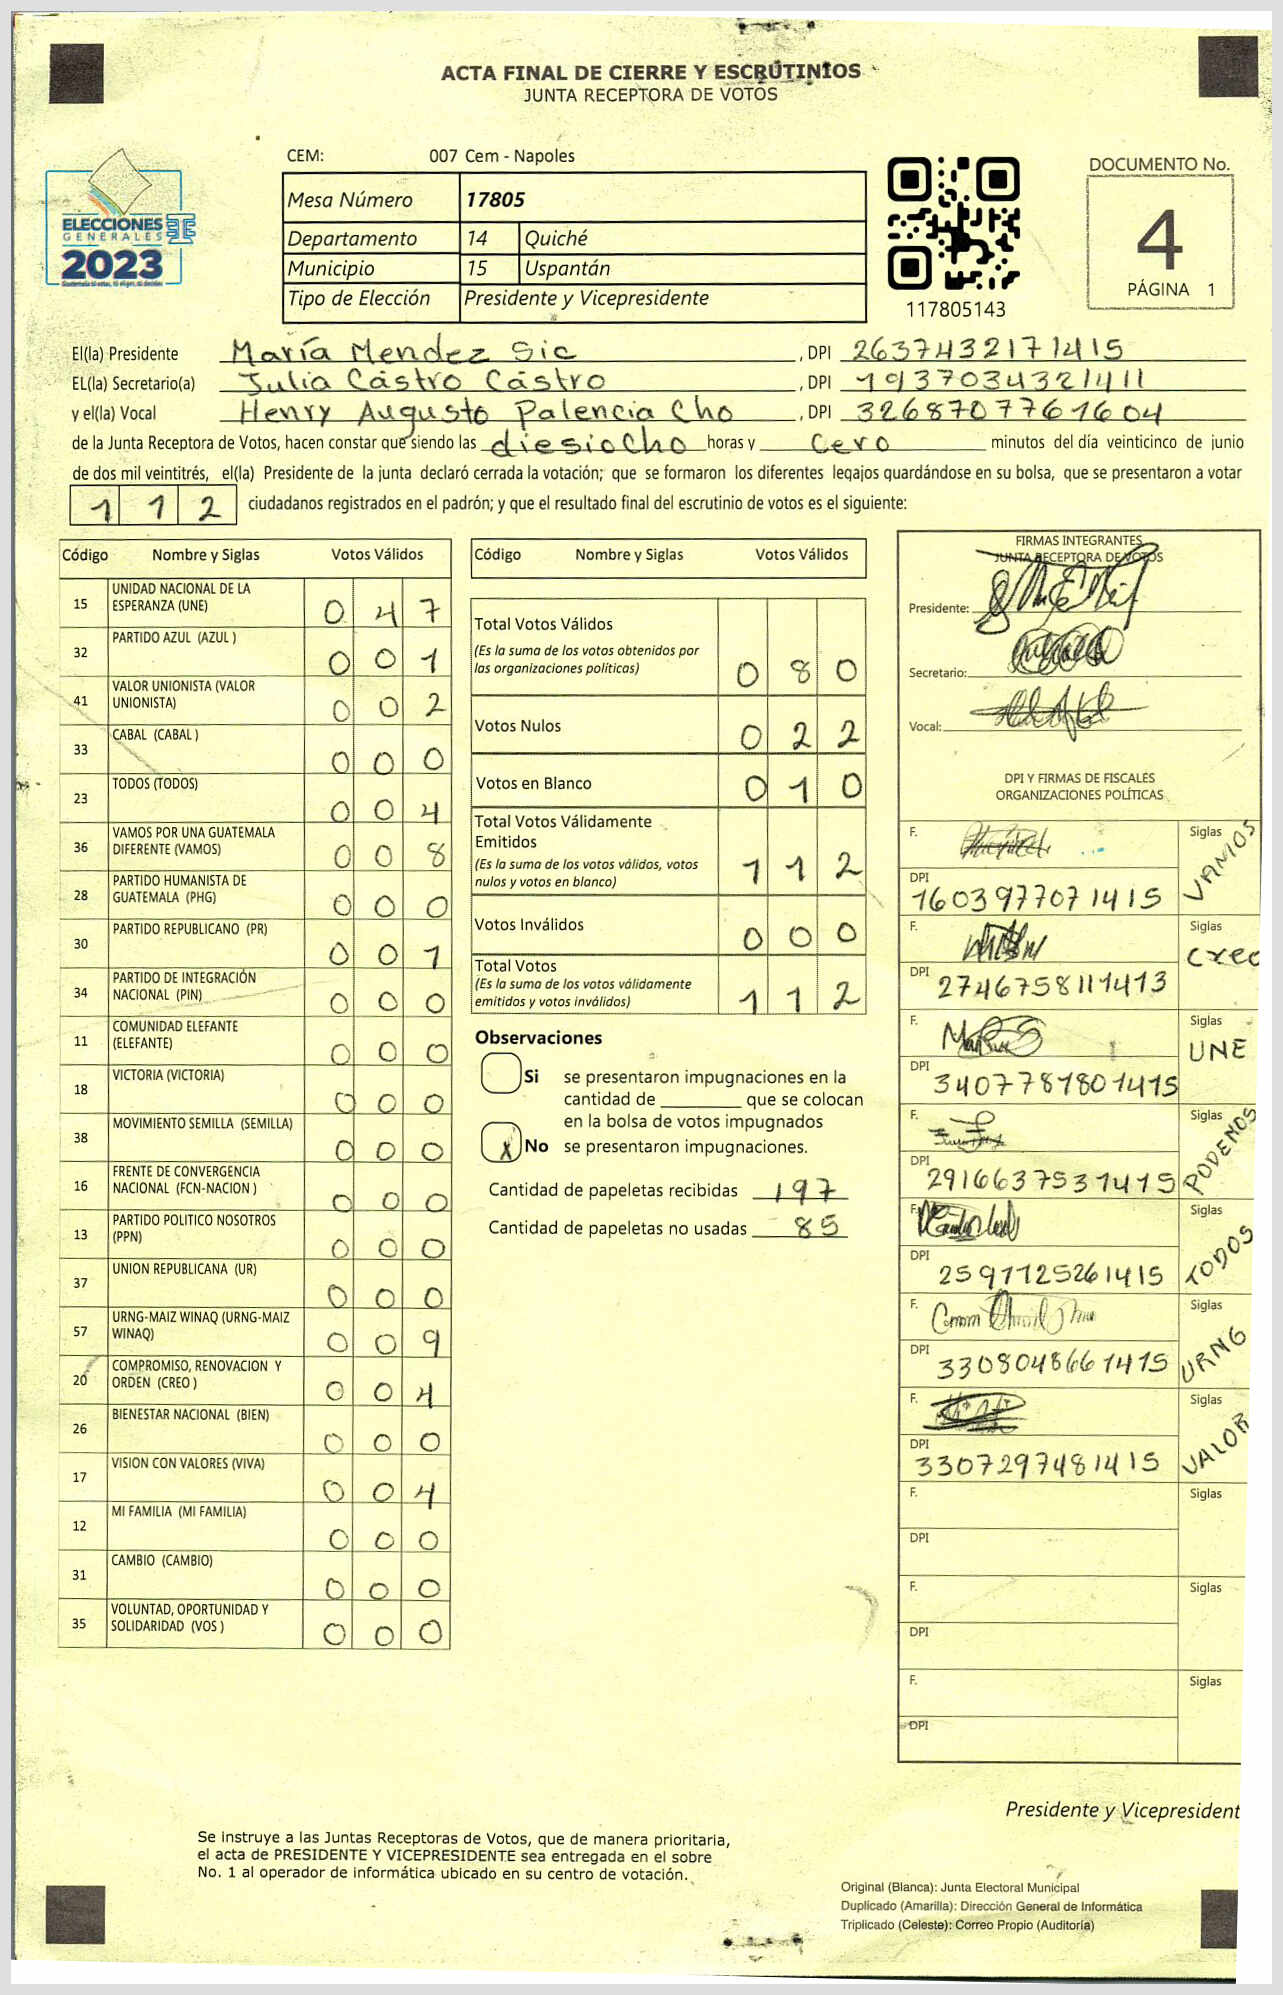 ACTA FINAL DE CIERRE Y ESCRUTINIOS
JUNTA RECEPTORA DE VOTOS
CEM: 007 Cem - Napoles
ELECCIONES
GENERALES
2023
Mesa Número 17805
Departamento 14 Quiché
Municipio 15 Uspantán
Tipo de Elección Presidente y Vicepresidente
117805143
DOCUMENTO No.
4
PÁGINA 1
El(la) Presidente María Mendez Sic , DPI 2637432171415
EL(la) Secretario(a) Julia Castro Castro , DPI 1937034321411
y el(la) Vocal Henry Augusto Palencia Cho , DPI 3268707761604
de la Junta Receptora de Votos, hacen constar que siendo las diesiocho horas y cero minutos del día veinticinco de junio
de dos mil veintitrés, el(la) Presidente de la junta declaró cerrada la votación; que se formaron los diferentes legajos guardándose en su bolsa, que se presentaron a votar
112 ciudadanos registrados en el padrón; y que el resultado final del escrutinio de votos es el siguiente:
Código Nombre y Siglas Votos Válidos
15 UNIDAD NACIONAL DE LA ESPERANZA (UNE) 047
32 PARTIDO AZUL (AZUL ) 001
41 VALOR UNIONISTA (VALOR UNIONISTA) 002
33 CABAL (CABAL ) 000
23 TODOS (TODOS) 004
36 VAMOS POR UNA GUATEMALA DIFERENTE (VAMOS) 008
28 PARTIDO HUMANISTA DE GUATEMALA (PHG) 000
30 PARTIDO REPUBLICANO (PR) 001
34 PARTIDO DE INTEGRACIÓN NACIONAL (PIN) 000
11 COMUNIDAD ELEFANTE (ELEFANTE) 000
18 VICTORIA (VICTORIA) 000
38 MOVIMIENTO SEMILLA (SEMILLA) 000
16 FRENTE DE CONVERGENCIA NACIONAL (FCN-NACION ) 000
13 PARTIDO POLITICO NOSOTROS (PPN) 000
37 UNION REPUBLICANA (UR) 000
57 URNG-MAIZ WINAQ (URNG-MAIZ WINAQ) 009
20 COMPROMISO, RENOVACION Y ORDEN (CREO ) 004
26 BIENESTAR NACIONAL (BIEN) 000
17 VISION CON VALORES (VIVA) 004
12 MI FAMILIA (MI FAMILIA) 000
31 CAMBIO (CAMBIO) 000
35 VOLUNTAD, OPORTUNIDAD Y SOLIDARIDAD (VOS ) 000
Código Nombre y Siglas Votos Válidos
Total Votos Válidos
(Es la suma de los votos obtenidos por
las organizaciones políticas) 080
Votos Nulos 022
Votos en Blanco 010
Total Votos Válidamente
Emitidos
(Es la suma de los votos válidos, votos
nulos y votos en blanco) 112
Votos Inválidos 000
Total Votos
(Es la suma de los votos válidamente
emitidos y votos inválidos) 112
Observaciones
Si se presentaron impugnaciones en la
cantidad de ________ que se colocan
en la bolsa de votos impugnados
X No se presentaron impugnaciones.
Cantidad de papeletas recibidas 197
Cantidad de papeletas no usadas 85
FIRMAS INTEGRANTES
JUNTA RECEPTORA DE VOTOS
Presidente:
Secretario:
Vocal:
DPI Y FIRMAS DE FISCALES
ORGANIZACIONES POLÍTICAS
F. Siglas VAMOS
DPI 1603977071415
F. Siglas creo
DPI 2746758111413
F. Siglas UNE
DPI 3407781801415
F. Siglas PODEMOS
DPI 2916637531415
F. Siglas TODOS
DPI 2597725261415
F. Siglas URNG
DPI 3308048661415
F. Siglas VALOR
DPI 3307297481415
F. Siglas
DPI
F. Siglas
DPI
F. Siglas
DPI
Presidente y Vicepresident
Se instruye a las Juntas Receptoras de Votos, que de manera prioritaria,
el acta de PRESIDENTE Y VICEPRESIDENTE sea entregada en el sobre
No. 1 al operador de informática ubicado en su centro de votación.
Original (Blanca): Junta Electoral Municipal
Duplicado (Amarilla): Dirección General de Informática
Triplicado (Celeste): Correo Propio (Auditoría)